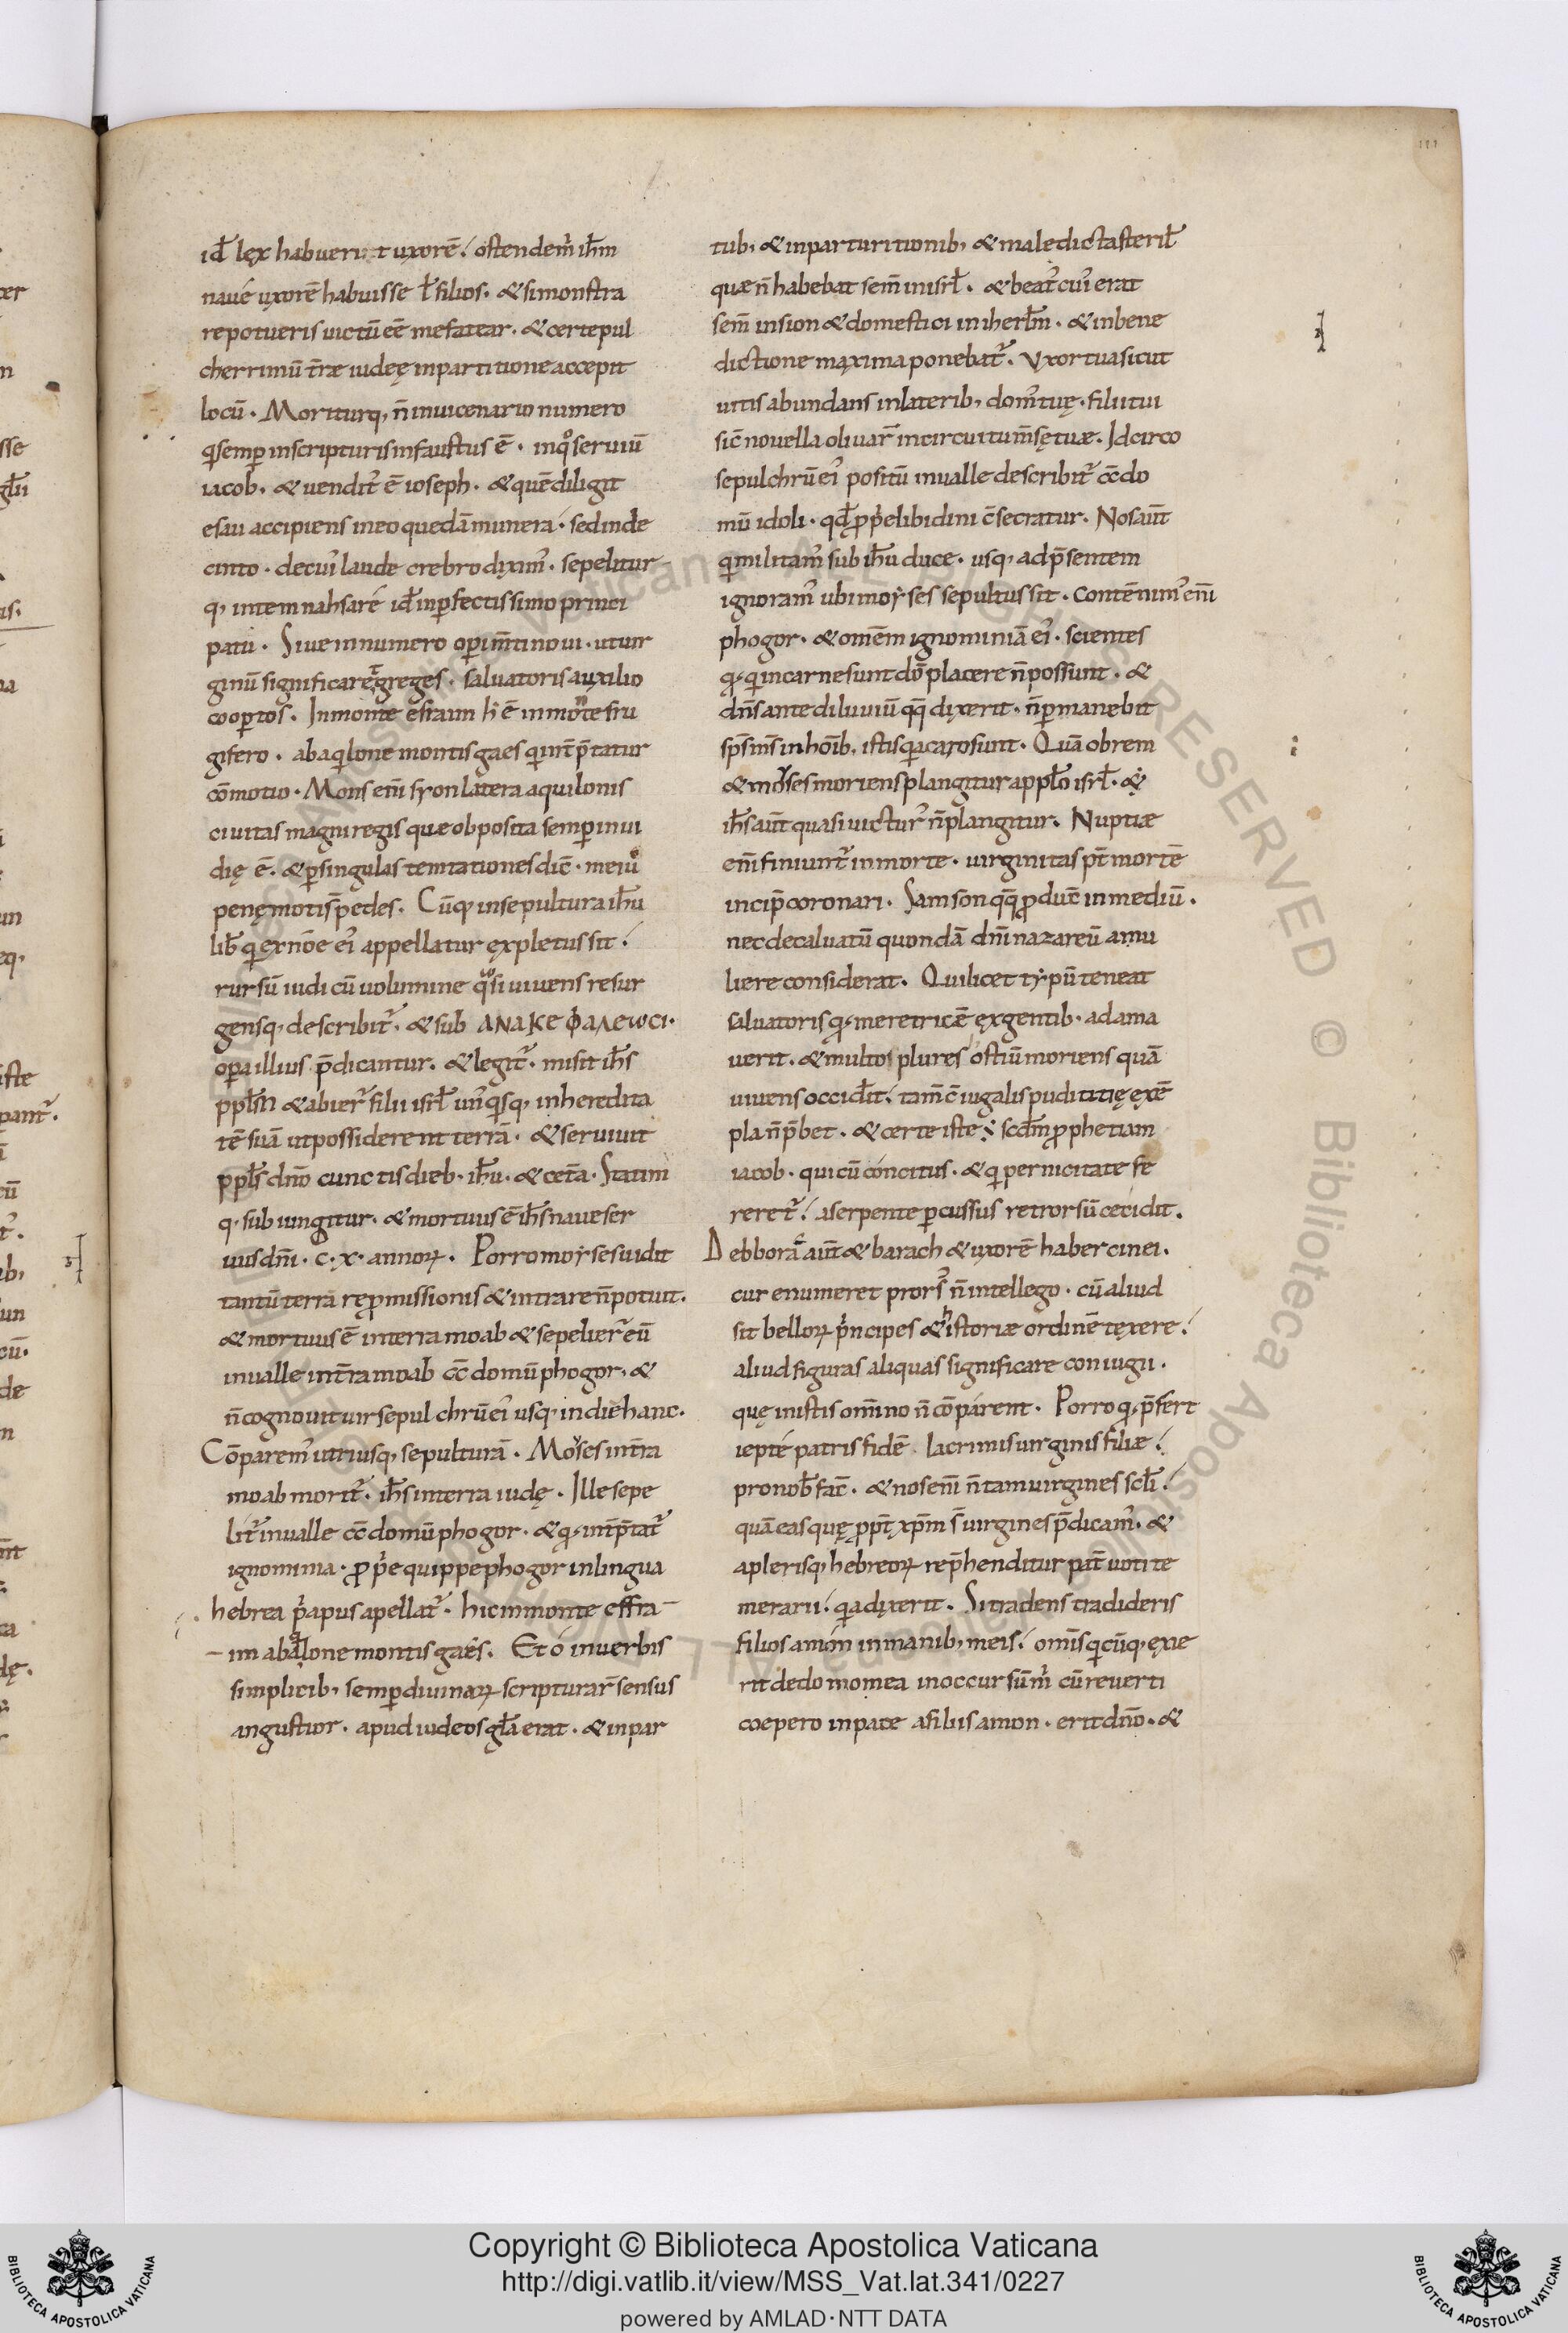 id̄ lęx habueru t uxorē. ostendem᷒ ih̄m
naué uxorē habuisse ł filios. & si monstra
re potueris uictū ēē me fatear. & certe pul
cherrimū t̄ræ iudeę in partitione accepit
locū. Moriturq, n̄ in uicenario numero
q̄ semp̄ in scripturis infaustus ē. in qͦ seruiū
iacob. & uendit᷒ ē ioseph. & quē diligit
esau accipiens in eo quedā munera. sed in de
cinto. de cui᷒ laude crebro dixim᷒. sepelitur
q, in temnahsaré id̄ in p̄fectissimo princi
patu. Siue in numero op̄im̄ti noui. utuir
ginū significare greges. saluatoris auxilio
coop̄tos. In monte efraim h̄ ē in mōte fru
gifero. ab aq̄lone montis gaes q̄ int̄p̄tatur
cōmotio. Mons enī syon latera aquilonis
ciuitas magni regis quæ obposita semp̄ inui
dię ē. & p̄ singulas temtationes dic̄. mei uͦ
penę moti s̄ pedes. Cūq, in sepultura ih̄u
lib̄ q̄ ex nōe ei᷒ appellatur expletus sit.
rursū iudicū uolumine q̄si uiuens resur
gensq, describit᷒. & sub ΑΝΑΚΕΦΑΛΕωCΙ.
op̄a illius p̄dicantur. & legit᷒. misit ih̄s
ppl̄m & abier̄ filii isrł un᷒q̄sq, in heredita
tē suā ut possiderent terrā. & seruiuit
ppl̄s dn̄o cunctis dieb. ih̄u. & cet̄a. Statim
q, subiungitur. & mortuus ē ih̄s naue ser
uus dn̄i. c. x. annoꝝ. Porro moyses uidit
tantū terrā rep̄missionis & intrare n̄ potuit.
& mortuus ē in terra moab & sepelier̄ eū
in ualle in t̄ra moab cc̄ domū phogor, &
n̄ cognouit uir sepulchrū ei᷒ usq, in diē hanc.
Cōparem᷒ utriusq, sepulturā. Moyses in t̄ra
moab morit᷒. ih̄s in terra iudę. Ille sepe
lit᷒ in ualle cc̄ domū phogor. & q, int̄p̄tat᷒
ignominia. ꝓp̄e quippe phogor in lingua
hebrea p̄apus apellat᷒. hic in monte effra
im ab aq̄lone montis gaes. Et ó in uerbis
simplicib, semp̄ diuinaꝝ scripturar̄ sensus
angustior. apud iudeos gl̄a erat. & in par
tub, & in parturitionib, & maledicta sterił
quæ n̄ habebat sem̄ in isrł. & beat᷒ cui᷒ erat
sem̄ in sion & domestici in iherłm. & in bene
dictione maxima ponebat᷒. Vxor tua sicut
uitis abundans in laterib, dom᷒ tuę. filii tui
sic̄ nouella oliuar̄ in circuitu m̄sę tuæ. Idcirco
sepulchrū ei᷒ positū in ualle describit᷒ cc̄ do
mū idoli. qd̄ ꝓp̄e libidini c̄secratur. Nos aūt
q̄ militam᷒ sub ih̄u duce. usq, ad p̄sentem
ignoram᷒ ubi moyses sepultus sit. contēnim᷒ enī
phogor. & omēm ignominiā ei᷒. scientes
q, q̄ in carne sunt dō placere n̄ possunt. &
dn̄s ante diluuiū qq̄ dixerit. n̄ p̄manebit
sp̄s m̄s in hōib, istis q̄a caro sunt. Quā obrem
& moyses moriens plangitur a pplo isrł. &
ih̄s aūt quasi uictur᷒ n̄ plangitur. Nuptiæ
enī finiunt᷒ in morte. uirginitas pt̄ mortē
incip̄ coronari. Samson qq̄ ꝓduc̄ in mediū.
nec decaluatū quondā dn̄i nazareū a mu
liere considerat. Qui licet typū teneat
saluatoris q, meretricē ex gentib. adama
uerit. & multo plures ostiū moriens quā
uiuens occidit. tam̄ c̄iugalis pudititię exē
pla n̄ p̄bet. & certe iste scdm̄ ꝓphetiam
iacob. qui cū concitus. & q̄ pernicitate fe
reret᷒. a serpente p̄cussus retrorsū cecidit.
Debborā aūt & barach & uxorē haber cinei.
cur enumeret prors᷒ n̄ intellego. cū aliud
sit belloꝝ p̄ncipes & historiæ ordinē texere.
aliud figuras aliquas significare coniugii.
quę in istis om̄ino n̄ cōparent. Porro q, p̄fert
iepte patris fidē lacrimis uirginis filiæ.
pro nob̄ fac̄. & nos enī n̄ tam uirgines scłi.
quā eas quę ꝓpt̄ xp̄m s̄ uirgines p̄dicam᷒. &
a plerisq, hebreoꝝ rep̄henditur pat̄ uoti te
merarii. q̄a dixerit. Si tradens tradideris
filios amón in manib, meis. om̄s q̄cūq, exie
rit de domo mea in occursū m̄ cū reuerti
coepero in pace a filiis amon. erit dn̄o. &
Copyright © Biblioteca Apostolica Vaticana
http://digi.vatlib.it/view/MSS_Vat.lat.341/0227
powered by AMLAD·NTT DATA